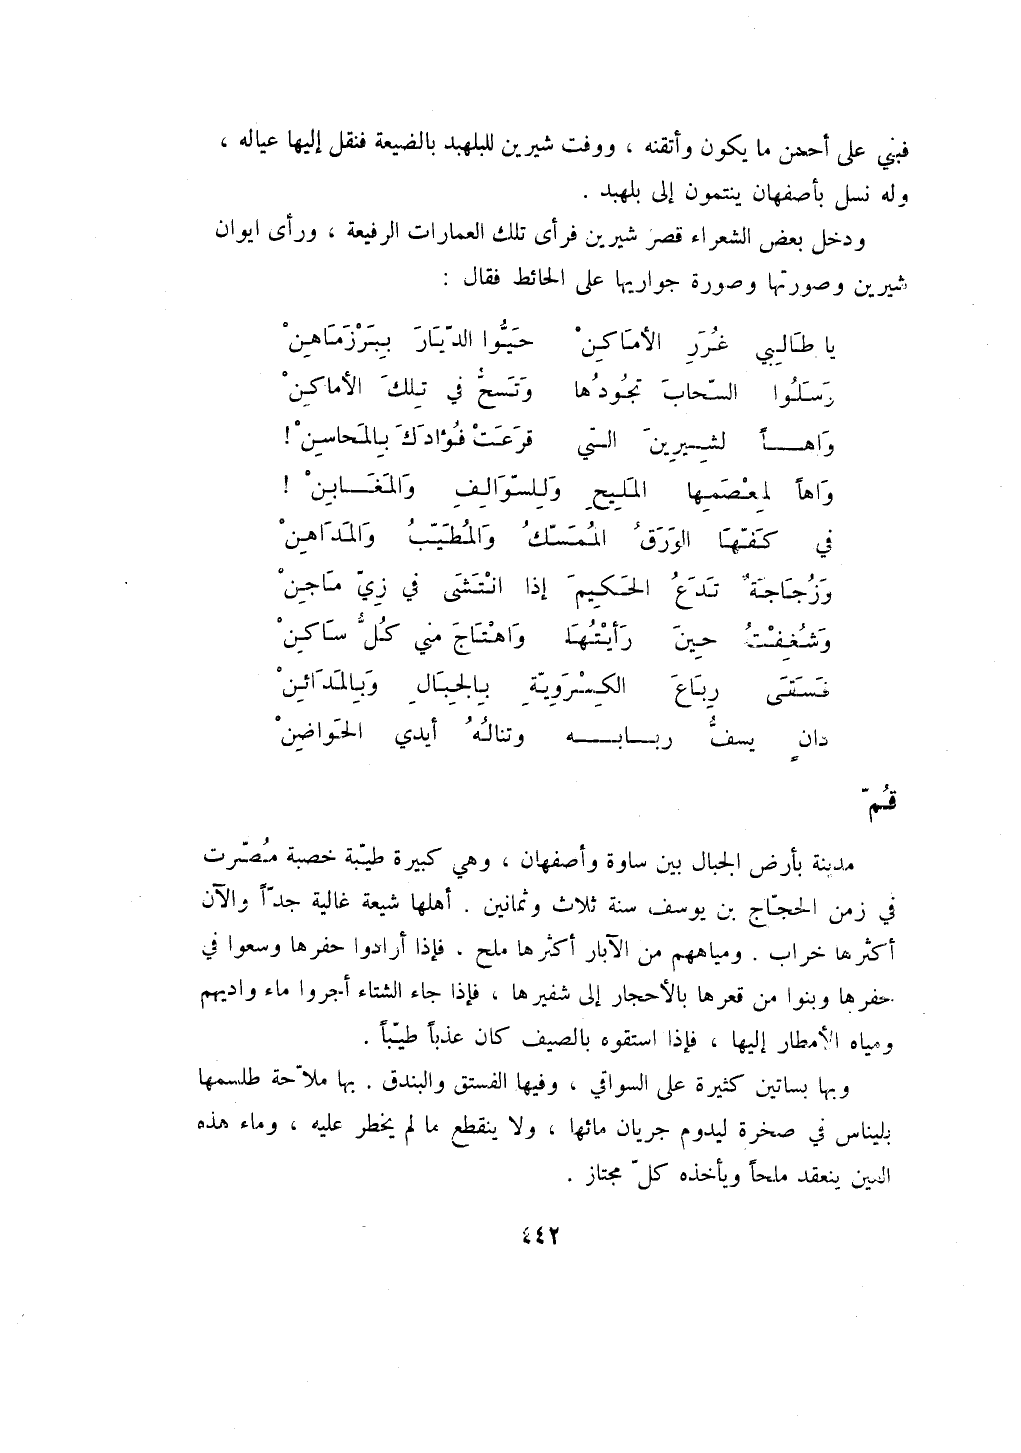 فبني على أحسن ما يكون وأتقنه ، ووفت شيرين للبلهبد بالضيعة فنقل إليها عياله ،
وله نسل بأصفهان ينتمون إلى بلهبد .
ودخل بعض الشعراء قصر شيرين فرأى تلك العمارات الرفيعة ، ورأى ايوان
شيرين وصورتها وصورة جواريها على الحائط فقال :
يا طَالِبِي غُرَرِ الأمَاكِنْ حَيُّوا الدّيَارَ بِبَرْزَمَاهِنْ
وَسَلُوا السّحابَ تجُودُها وَتَسحُّ في تِلكَ الأماكِنْ
وَاهــاً لشِيرِينَ التي قرَعَتْ فُؤادَكَ بِالمَحاسِنْ !
وَاهاً لمِعْصَمِها المَلِيحِ وَلِلسّوَالِفِ وَالمَغَابِنْ !
في كَفّهَا الوَرَقُ المُمَسّكُ وَالمُطَيّبُ وَالمَدَاهِنْ
وَزُجَاجَةٌ تَدَعُ الحَكِيمَ إذا انْتَشَى في زِيّ مَاجِنْ
وَشُغِفْتُ حِينَ رَأيْتُهَا وَاهْتَاجَ مني كُلُّ سَاكِنْ
فَسَقَى رِبَاعَ الكِسْرَوِيّةِ بِالجِبَالِ وَبِالمَدَائِنْ
دانٍ يسفُّ ربــابــه وتنالُهُ أيدي الحَوَاضِنْ
قُمّ
مدينة بأرض الجبال بين ساوة وأصفهان ، وهي كبيرة طيّبة خصبة مُصّرت
في زمن الحجّاج بن يوسف سنة ثلاث وثمانين . أهلها شيعة غالية جدّاً والآن
أكثرها خراب . ومياههم من الآبار أكثرها ملح . فإذا أرادوا حفرها وسعوا في
حفرها وبنوا من قعرها بالأحجار إلى شفيرها ، فإذا جاء الشتاء أجروا ماء واديهم
ومياه الأمطار إليها ، فإذا استقوه بالصيف كان عذباً طيّباً .
وبها بساتين كثيرة على السواقي ، وفيها الفستق والبندق . بها ملاّحة طلسمها
بليناس في صخرة ليدوم جريان مائها ، ولا ينقطع ما لم يخطر عليه ، وماء هذه
العين ينعقد ملحاً ويأخذه كلّ مجتاز .
٤٤٢